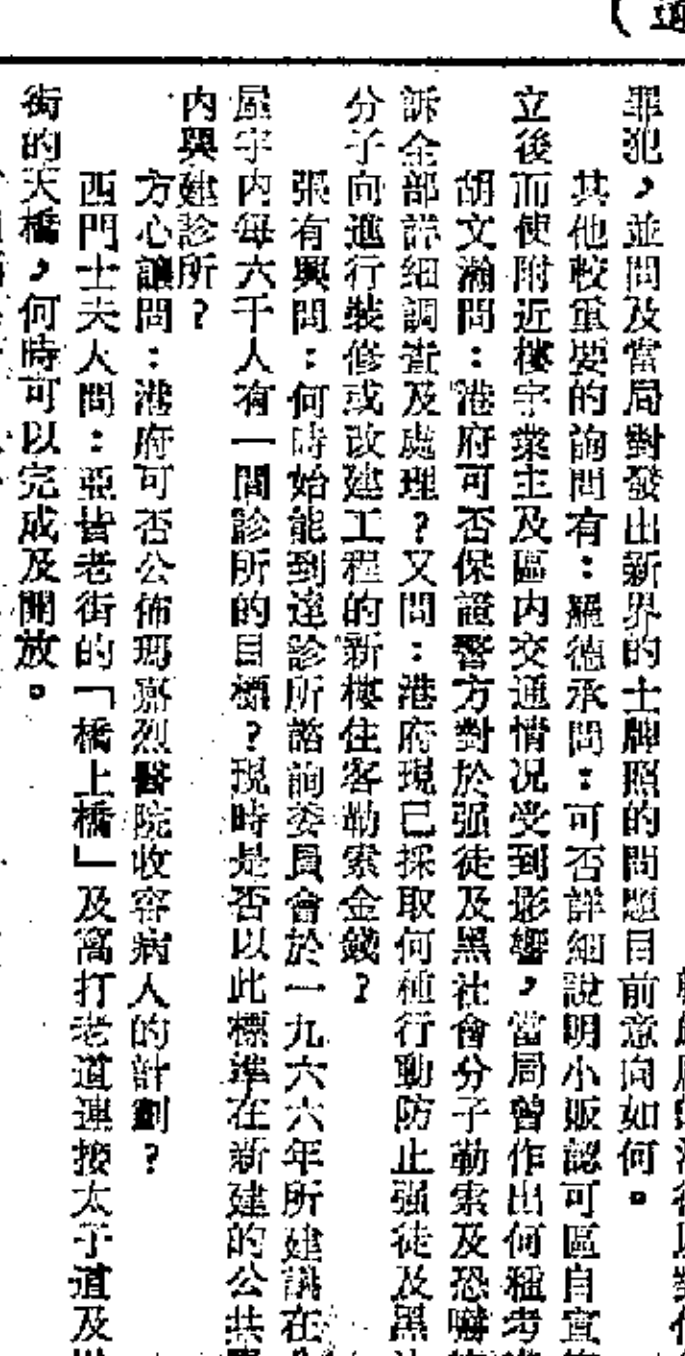 罪犯，並問及當局對發出新界的士牌照的問題目前意向如何。
其他較重要的詢問有：羅德承問：可否詳細說明小販認可區自宣
立後而使附近樓宇業主及區内交通情况受到影響，當局曾作出何種考
胡文瀚問：港府可否保證警方對於强徒及黑社會分子勒索及恐嚇
訴金部詳细調查及處理？又問：港府現已採取何種行動防止强徒及黑
分子向進行裝修或改建工程的新樓住客勒索金錢？
張有興問：何時始能到達診所諮詢委員會於一九六六年所建議在
屋宇内每六千人有一間診所的目標？現時是否以此標準在新建的公共
内興建診所？
方心讓問：港府可否公佈瑪嘉烈醫院收容病人的計劃？
西門士夫人問：亞皆老街的「橋上橋」及窩打老道連接太子道及
街的天橋，何時可以完成及開放。